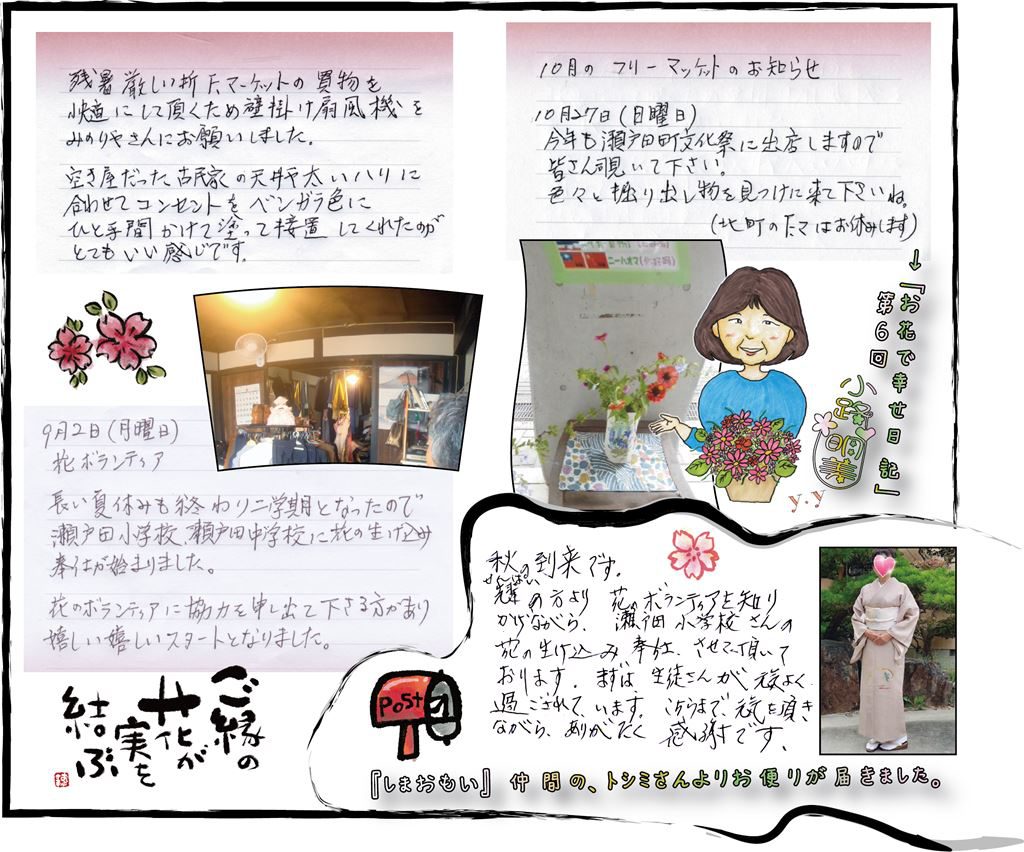 残暑厳しい折 F.マーケットの買物を
快適にして頂くため壁掛け扇風機を
みのりやさんにお願いしました。
空き屋だった古民家の天井や太いハリに
合わせてコンセントをベンガラ色に
ひと手間かけて塗って接置してくれたのが
とてもいい感じです。
10月の フリーマッケットのお知らせ
10月27日(月曜日)
今年も瀬戸田町文化祭に出店しますので
皆さん覗いて下さい。
色々と掘り出し物を見つけに来て下さいね。
(北町のF.マはお休みします)
↓『お花で幸せ日記』
第6回
小路明美
ニーハオマ
y.y
9月2日(月曜日)
花ボランティア
長い夏休みも終わり二学期となったので
瀬戸田小学校、瀬戸田中学校に花の生け込み
奉仕が始まりました。
花のボランティアに協力を申し出て下さる方があり
嬉しい嬉しいスタートとなりました。
ご縁の
花が
実を
結ぶ
POST
秋の到来です。
せんぱい
輩の方より 花のボランティアを知り
かげながら、瀬戸田小学校さんの
花の生け込み奉仕、させて頂いて
おります。まずは生徒さんが元気よく
過ごされて、います。こちらまで、元気を頂き
ながら、ありがたく 感謝です、
『しまおもい』仲間の、トシミさんよりお便りが届きました。